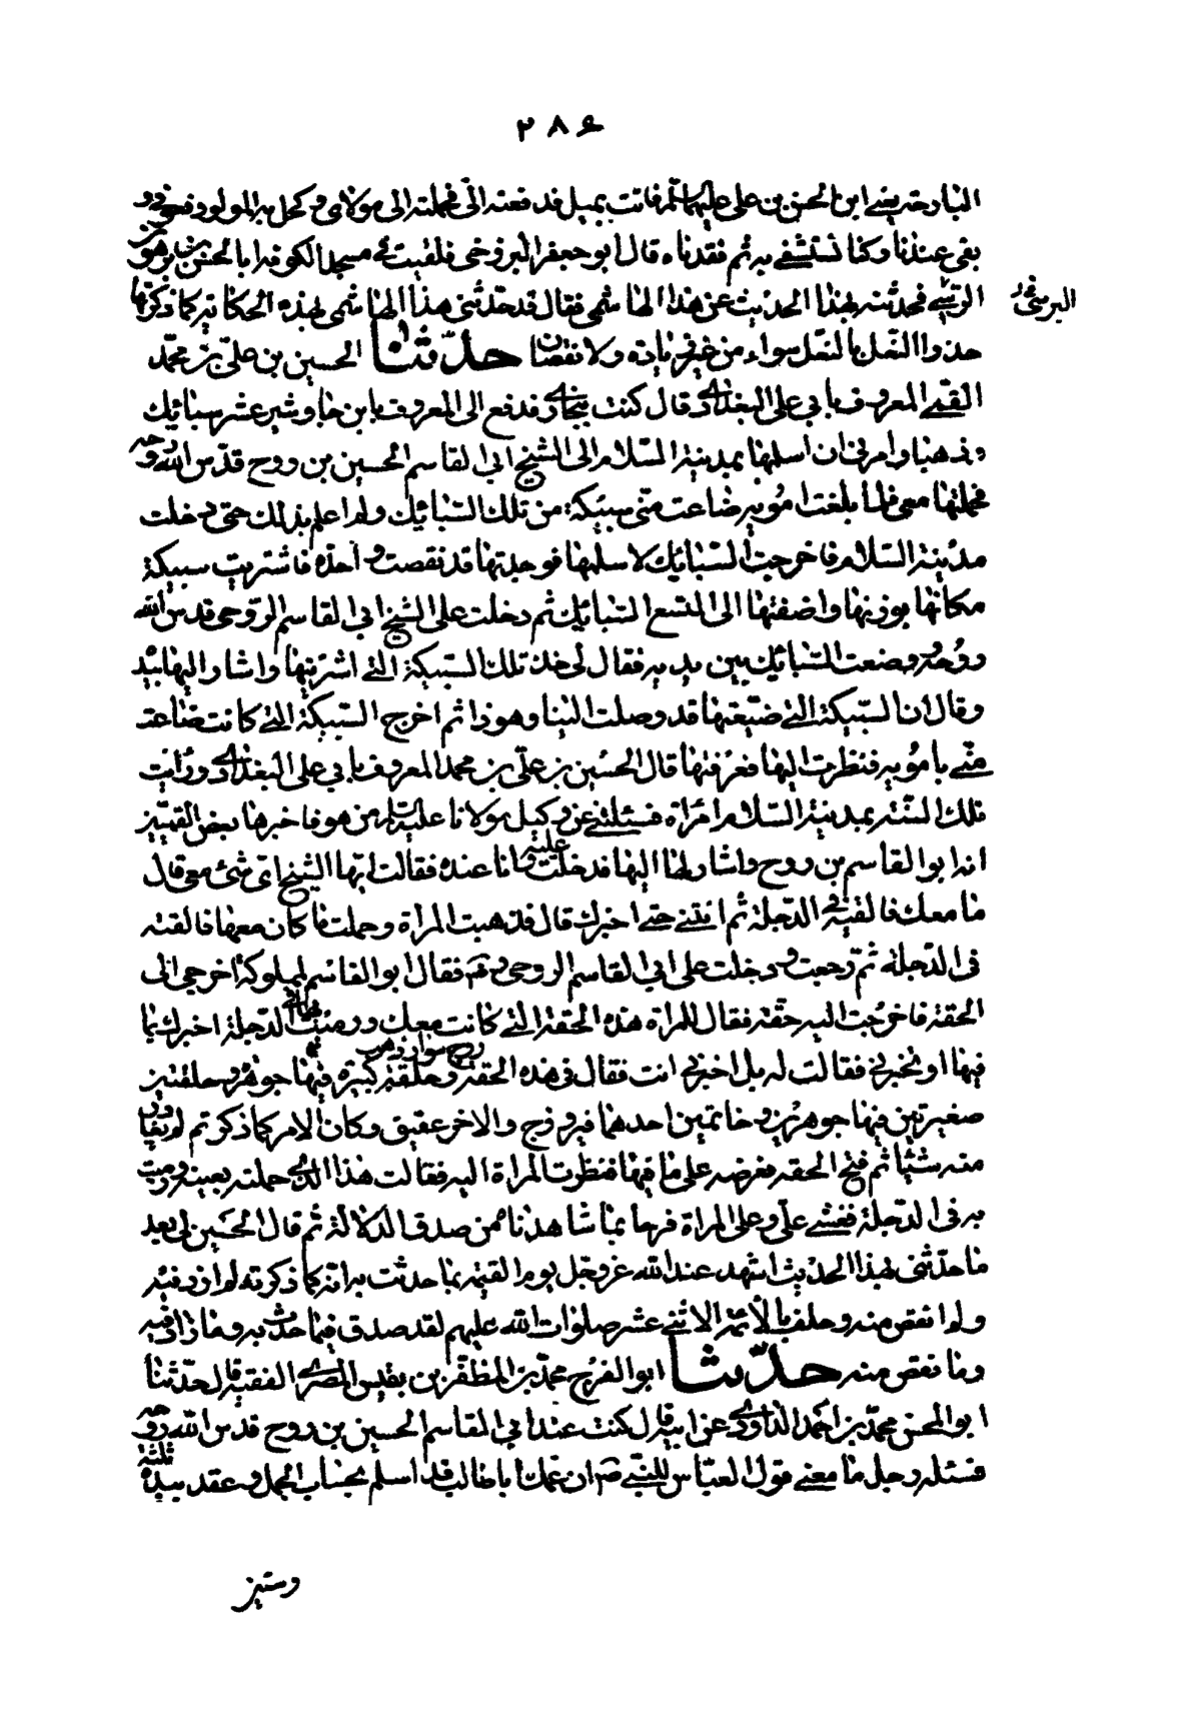 ٢٨۶
البارحة يعنى ابن الحسن بن على عليهما السلم فاتت بميل فدفعته الى فحملته الى مولاى وكحل به المولود فعوفى و
بقى عندنا وكنا نستشفى به ثم فقدناه قال ابو جعفر البزوخى فلقيت فى مسجد الكوفة ابا الحسن بن برهون
البرسى فحدثته بهذا الحديث عن هذا الهاشمى فقال قد حدّثنى هذا الهاشمى بهذه الحكاية كما ذكرتها
حذوا النعل بالنعل سواء من غير زيادة ولا نقصان حدّثنا الحسين بن علىّ بن محمّد
القمى المعروف بابى على البغدادى قال كنت ببخارى فدفع الى المعروف بابن جاوشير عشر سبائك
ذهبا وامرنى ان اسلمها بمدينة السّلام الى الشيخ ابى القاسم الحسين بن روح قدّس الله روحه
فحملتها معى فلما بلغت اموية ضاعت منّى سبيكة من تلك السّبائك ولم اعلم بذلك حتى دخلت
مدينة السّلام فاخرجت السّبائك لاسلمها فوجدتها قد نقصت واحدة فاشتريت سبيكة
مكانها بوزنها واضفتها الى التسع السّبائك ثم دخلت على الشيخ ابى القاسم الرّوحى قدس الله
روحه ووضعت السّبائك بين يديه فقال لى خذ تلك السّبيكة التى اشتريتها واشار اليها بيده
وقال ان السّبيكة التى ضيّعتها قد وصلت الينا وهو ذا ثم اخرج السّبيكة التى كانت ضاعت
منّى باموية فنظرت اليها فعرفتها قال الحسين بن علىّ بن محمد المعروف بابى على البغدادى ورايت
تلك السّنة بمدينة السّلام امراة فسئلتنى عن وكيل مولانا عليه السلم من هو فاخبرها بعض القميين
انه ابو القاسم بن روح واشار لها اليها فدخلت عليه وانا عنده فقالت ايّها الشيخ اىّ شئ معى قال
ما معك فالقيه فى الدّجلة ثم ائتنى حتى اخبرك قال فذهبت المراة وحملت ما كان معها فالقته
فى الدّجلة ثم رجعت ودخلت على ابى القاسم الروحى فقال ابو القاسم لمملوكة اخرجى الى
الحقة فاخرجت اليه حقة فقال للمراة هذه الحقة التى كانت معك ورميت بها فى الدّجلة اخبرك بما
فيها او تخبرينى فقالت له بل اخبرنى انت فقال فى هذه الحقة زوج سوار ذهب وحلقة كبيرة فيها جوهرة وحلقتين
صغيرتين فيها جوهر وخاتمين احدهما فيروزج والاخر عقيق وكان الامر كما ذكر ثم لم يغادر
منه شيئا ثم فتح الحقة فعرض على ما فيها فنظرت المراة اليه فقالت هذا الذى حملته بعينه ورميت
به فى الدّجلة فغشى علىّ وعلى المراة فرحا بما شاهدناه من صدق الدّلالة ثم قال الحسين لى بعد
ما حدّثنى بهذا الحديث اشهد عند الله عزّ وجلّ يوم القيمة بما حدثت به انّه كما ذكرته لم ازد فيه
ولم انقص منه وحلف بالأئمّة الاثنى عشر صلوات الله عليهم لقد صدق فيما حدّث به وما زاد فيه
وما نقص منه حدّثنا ابو الفرج محمّد بن المظفّر بن نفيس المصرى الفقيه قال حدّثنا
ابو الحسن محمّد بن احمد الداودى عن ابيه قال كنت عند ابى القاسم الحسين بن روح قدس الله روحه
فسئله رجل ما معنى قول العبّاس للنبى ان عمك اباطالب قد اسلم بحساب الجمل وعقد بيده ثلثة
وستين